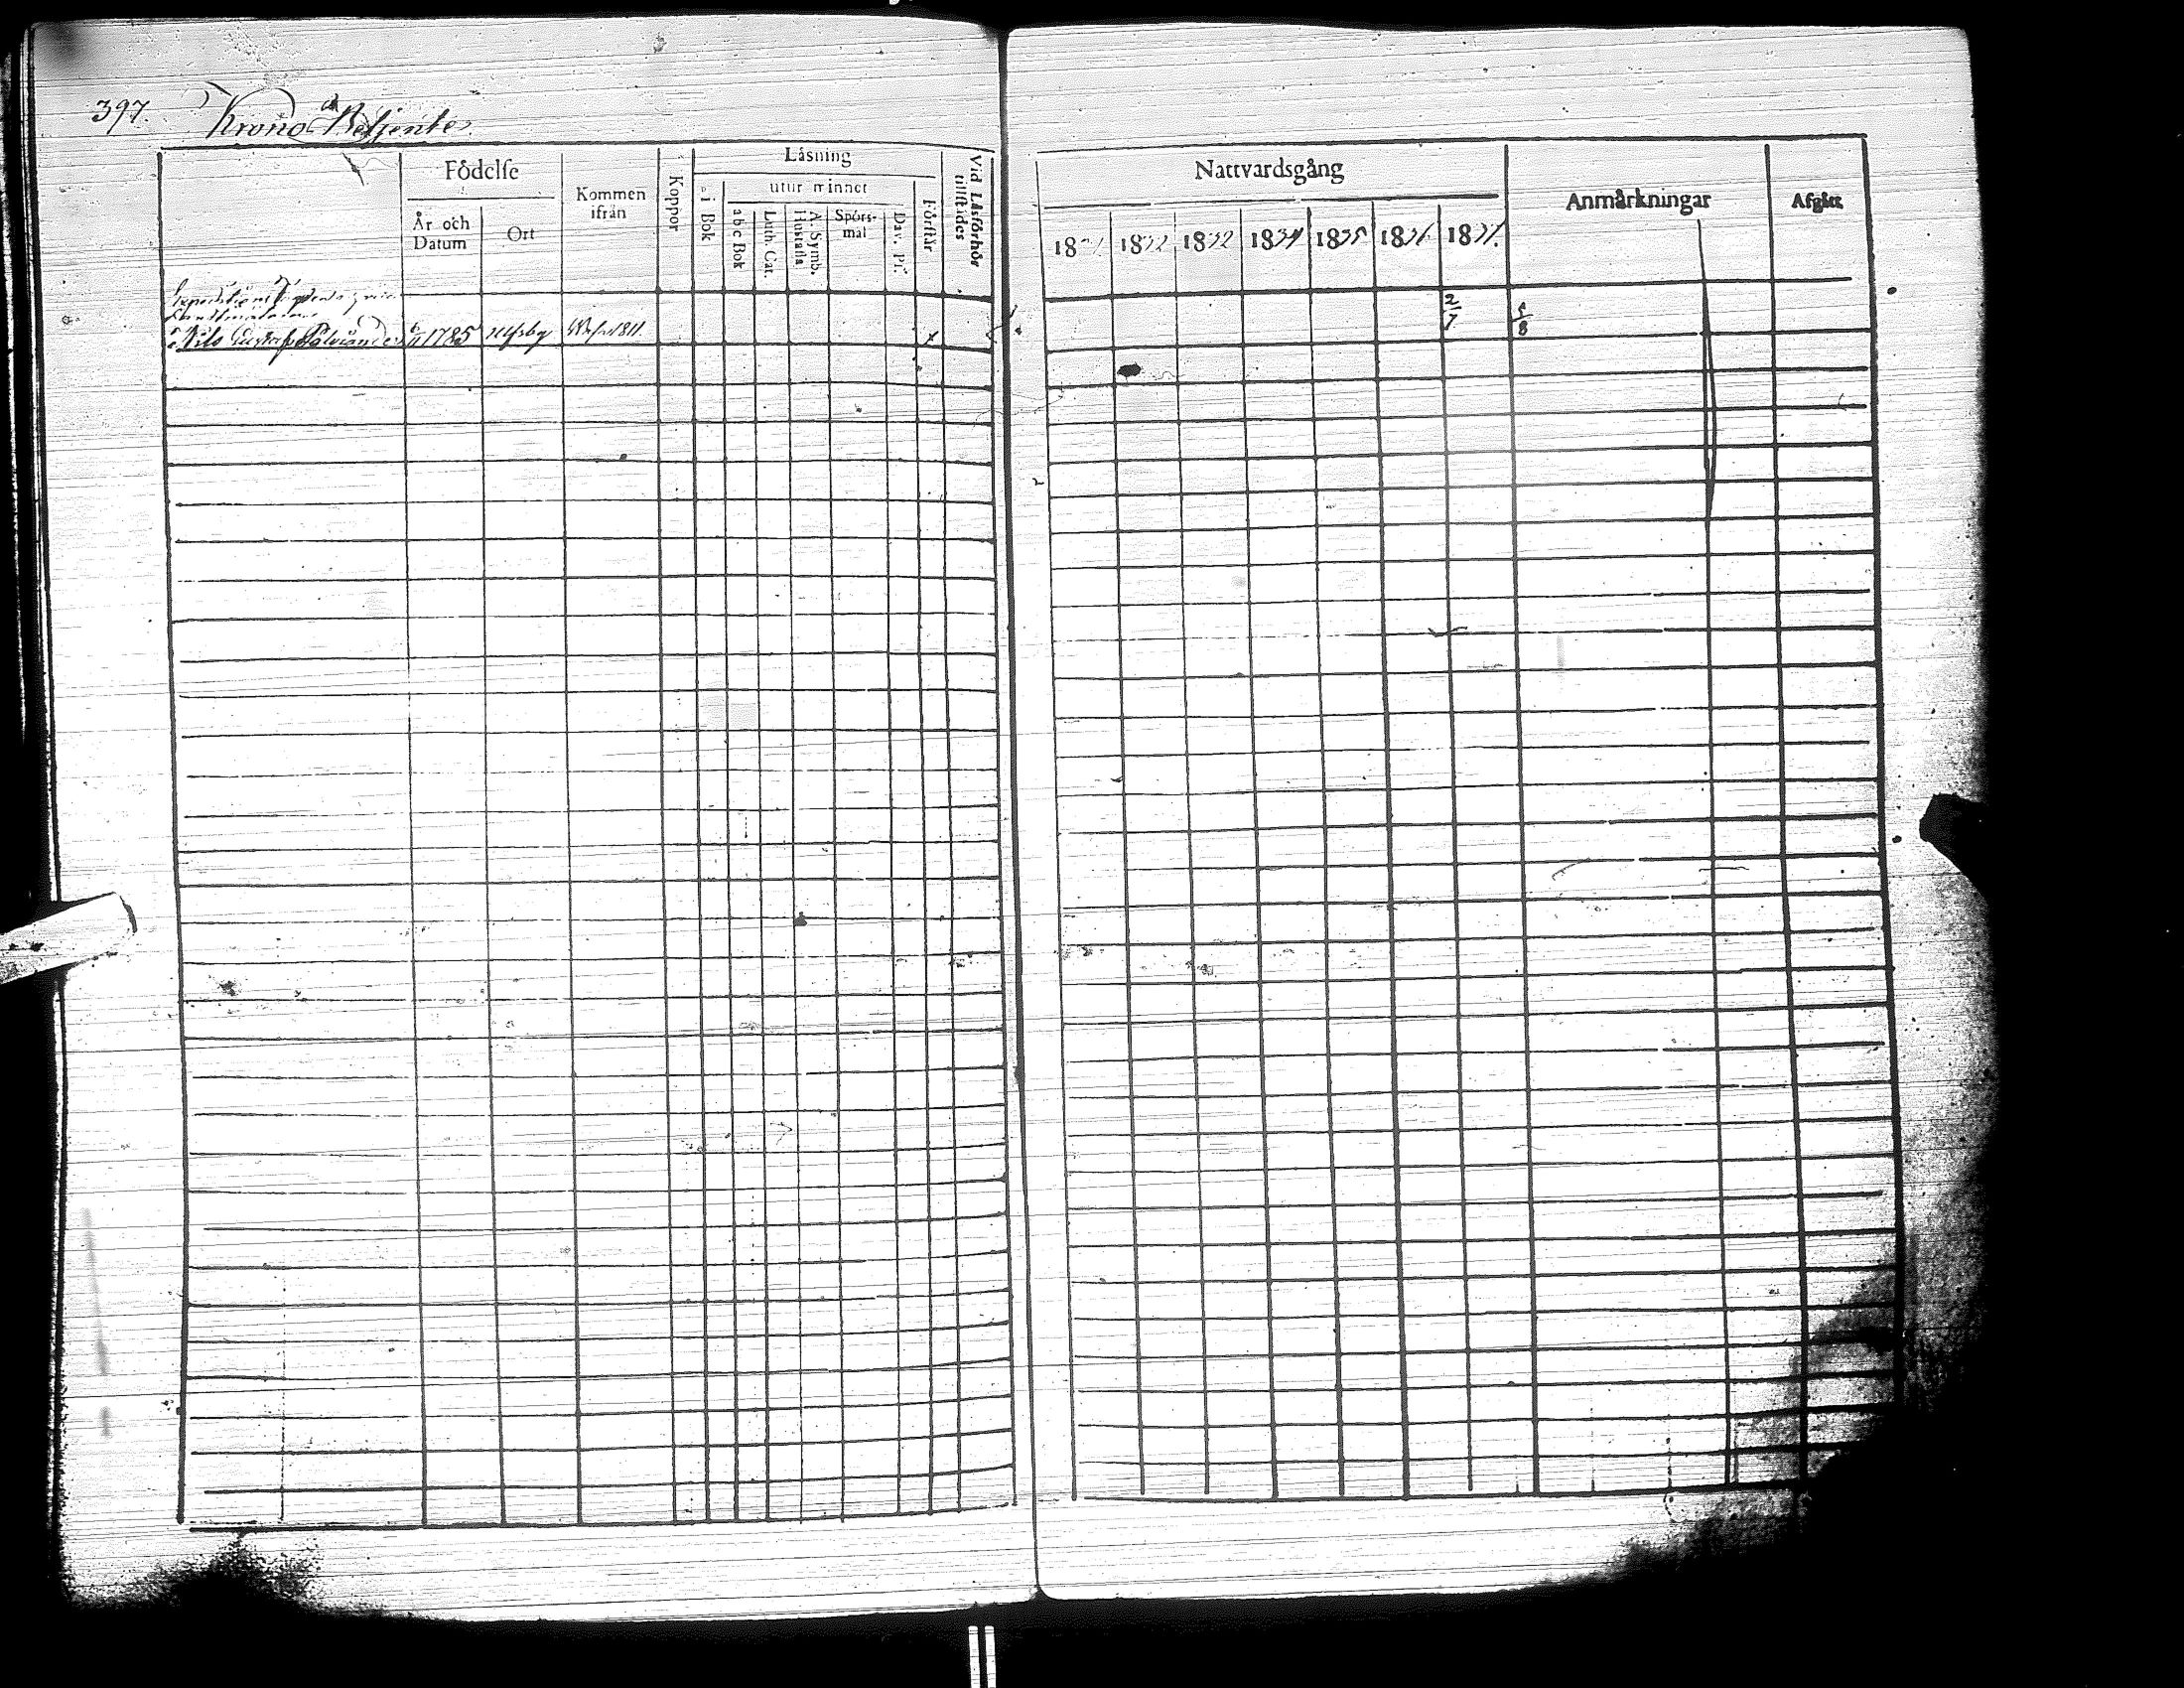 397. Krono Betjente
Födelse
År och Datum
Ort
Kommen ifrån
Koppor
Läsning
i Bok
utur minnet
a b c Bok
Luth. Cat.
A. Symb. Hustafla
Spörs-mål
Dav. Ps.
Förstår
Vid Läsförhör tillstädes
Nattvardsgång
18
1832
18
1834
1835
1836
1837.
Anmärkningar
Afgått
Nils 1785 Ulfsby 1811.
2/7
5/8